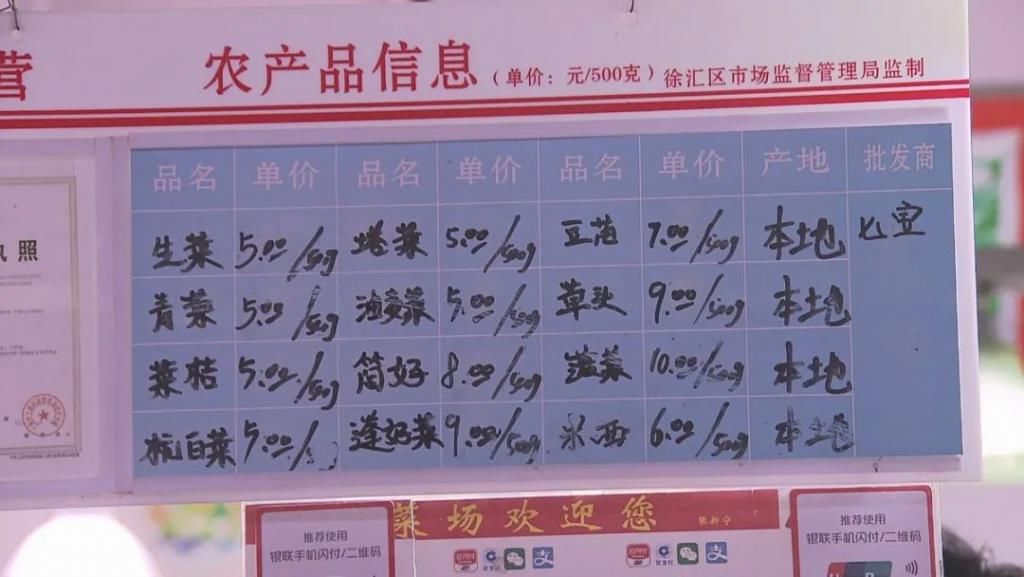 营
农产品信息
(单价：元/500克) 徐汇区市场监督管理局监制
品名 单价 品名 单价 品名 单价 产地 批发商
生菜 5.00/500g 捲菜 5.00/500g 豆苗 7.00/500g 本地
青菜 5.00/500g 油麦菜 5.00/500g 草头 9.00/500g 本地
菜桔 5.00/500g 筒好 8.00/500g 菠菜 10.00/500g 本地
杭白菜 5.00/ 蓬好菜 9.00/500g 米西 6.00/500g 本地
执照
菜场欢迎您
推荐使用
银联手机闪付/二维码
推荐使用
银联手机闪付/二维码